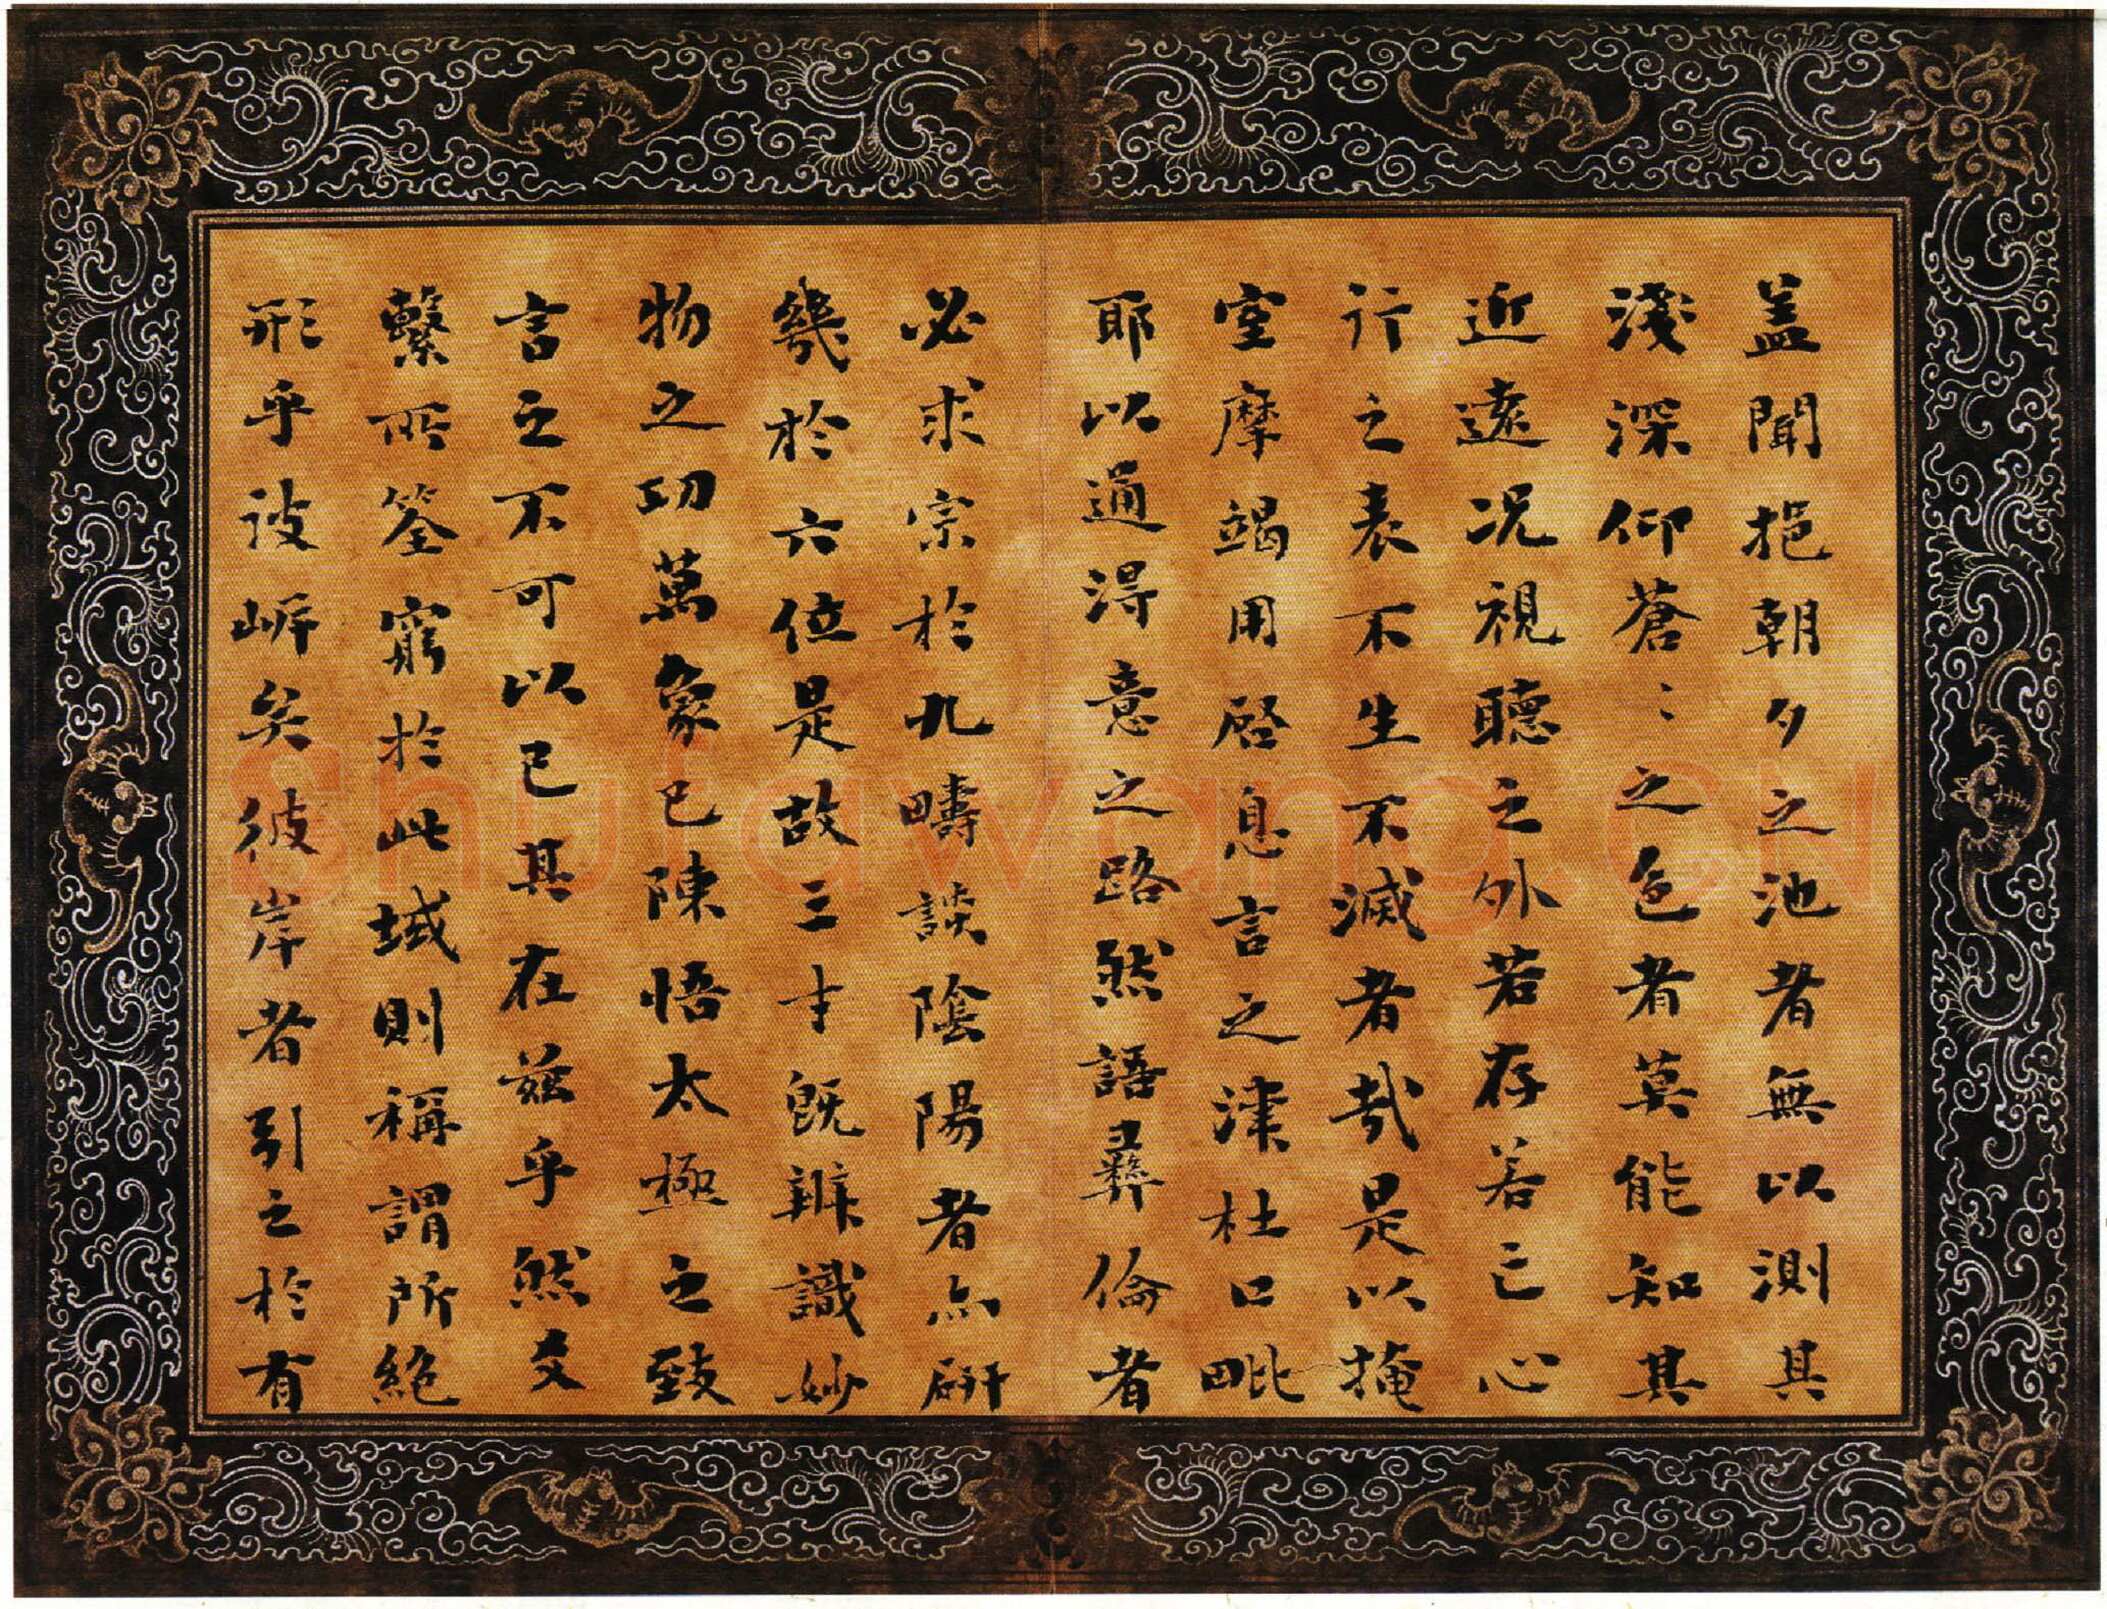 蓋聞挹朝夕之池者無以測其
淺深仰蒼〻之色者莫能知其
近遠況視聽之外若存若亡心
行之表不生不滅者哉是以掩
室摩竭用啓息言之津杜口毗
耶以通得意之路然語彞倫者
必求宗於九疇談陰陽者亦研
幾於六位是故三才既辨識妙
物之功萬象已陳悟太極之致
言之不可以已其在茲乎然爻
繫所筌窮於此域則稱謂所絕
形乎彼岸矣彼岸者引之於有
Shufawang.CN